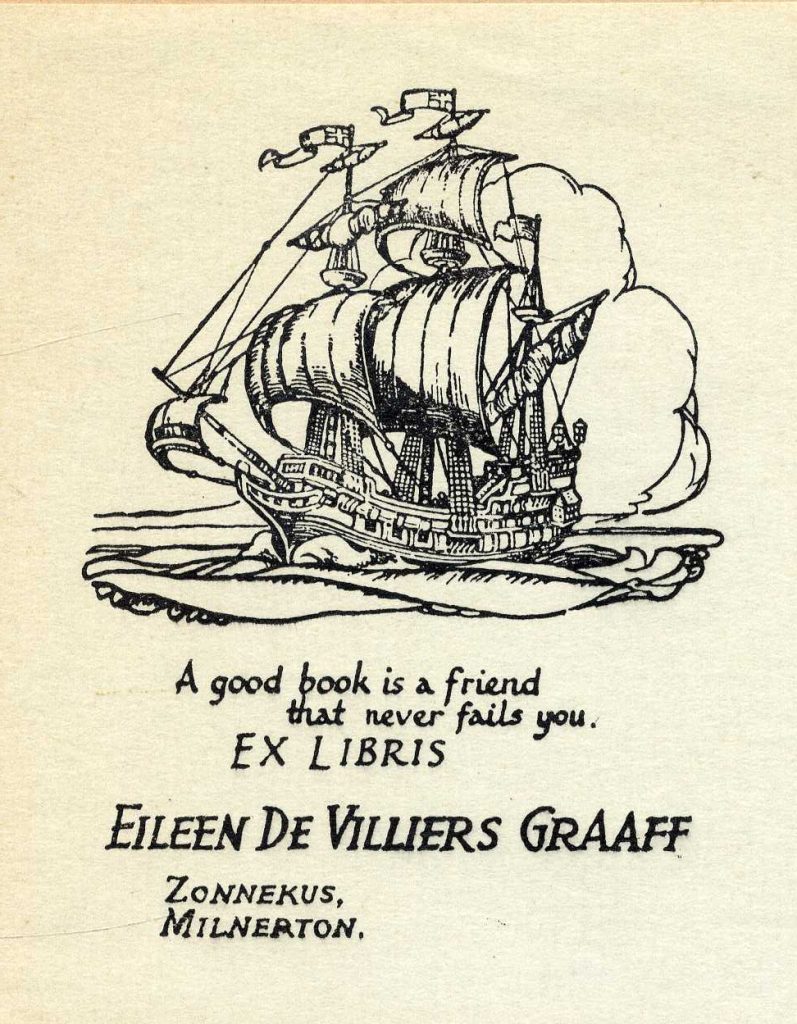 A good book is a friend
that never fails you.
EX LIBRIS
EILEEN DE VILLIERS GRAAFF
ZONNEKUS,
MILNERTON.